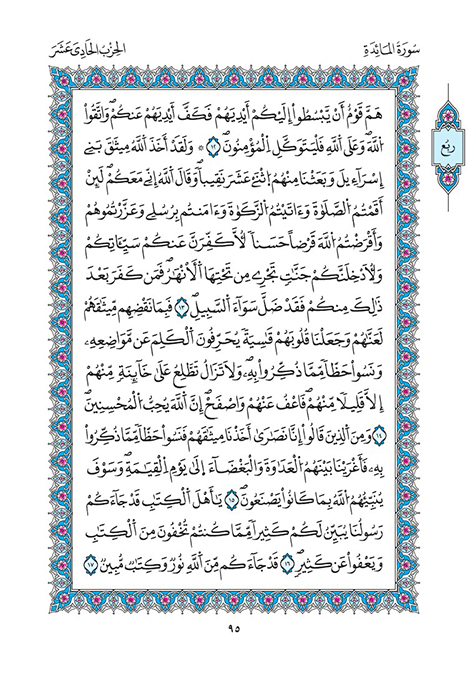 سورة المائدة
الحزب الحادي عشر
هَمَّ قَوْمٌ أَنْ يَّبْسُطُوٓاْ إِلَيْكُمُۥٓ أَيْدِيَهُمْ فَكَفَّ أَيْدِيَهُمْ عَنكُمْ وَاتَّقُواْ
اللَّهَ وَعَلَى اللَّهِ فَلْيَتَوَكَّلِ الْمُؤْمِنُونَ ١٢ ۞ وَلَقَدْ أَخَذَ اللَّهُ مِيثَٰقَ بَنِےٓ
إِسْرَآءِيلَ وَبَعَثْنَا مِنْهُمُ اثْنَےْ عَشَرَ نَقِيباً وَقَالَ اللَّهُ إِنِّے مَعَكُمْ لَئِنْ
أَقَمْتُمُ الصَّلَوٰةَ وَءَاتَيْتُمُ الزَّكَوٰةَ وَءَامَنتُم بِرُسُلِے وَعَزَّرْتُمُوهُمْ
وَأَقْرَضْتُمُ اللَّهَ قَرْضاً حَسَناً لَّأُكَفِّرَنَّ عَنكُمْ سَيِّـَٔاتِكُمْ
وَلَأُدْخِلَنَّكُمْ جَنَّٰتٍ تَجْرِے مِن تَحْتِهَا الْأَنْهَٰرُ فَمَن كَفَرَ بَعْدَ
ذَٰلِكَ مِنكُمْ فَقَدْ ضَلَّ سَوَآءَ السَّبِيلِ ١٣ فَبِمَا نَقْضِهِم مِّيثَٰقَهُمْ
لَعَنَّٰهُمْ وَجَعَلْنَا قُلُوبَهُمْ قَٰسِيَةً يُحَرِّفُونَ الْكَلِمَ عَن مَّوَاضِعِهِۦ
وَنَسُواْ حَظّاً مِّمَّا ذُكِّرُواْ بِهِۦ وَلَا تَزَالُ تَطَّلِعُ عَلَىٰ خَآئِنَةٍ مِّنْهُمُۥٓ
إِلَّا قَلِيلًا مِّنْهُمْ فَاعْفُ عَنْهُمْ وَاصْفَحِ اِنَّ اللَّهَ يُحِبُّ الْمُحْسِنِينَ
١٤ وَمِنَ الَّذِينَ قَالُوٓاْ إِنَّا نَصَٰرَىٰٓ أَخَذْنَا مِيثَٰقَهُمْ فَنَسُواْ حَظّاً مِّمَّا ذُكِّرُواْ
بِهِۦ فَأَغْرَيْنَا بَيْنَهُمُ الْعَدَاوَةَ وَالْبَغْضَآءَ إِلَىٰ يَوْمِ الْقِيَٰمَةِ وَسَوْفَ
يُنَبِّئُهُمُ اللَّهُ بِمَا كَانُواْ يَصْنَعُونَ ١٥ يَٰٓأَهْلَ الْكِتَٰبِ قَدْ جَآءَكُمْ
رَسُولُنَا يُبَيِّنُ لَكُمْ كَثِيراً مِّمَّا كُنتُمْ تُخْفُونَ مِنَ الْكِتَٰبِ
وَيَعْفُواْ عَن كَثِيرٍ ١٦ قَدْ جَآءَكُم مِّنَ اللَّهِ نُورٌ وَكِتَٰبٌ مُّبِينٌ ١٧
ربع
٩٥